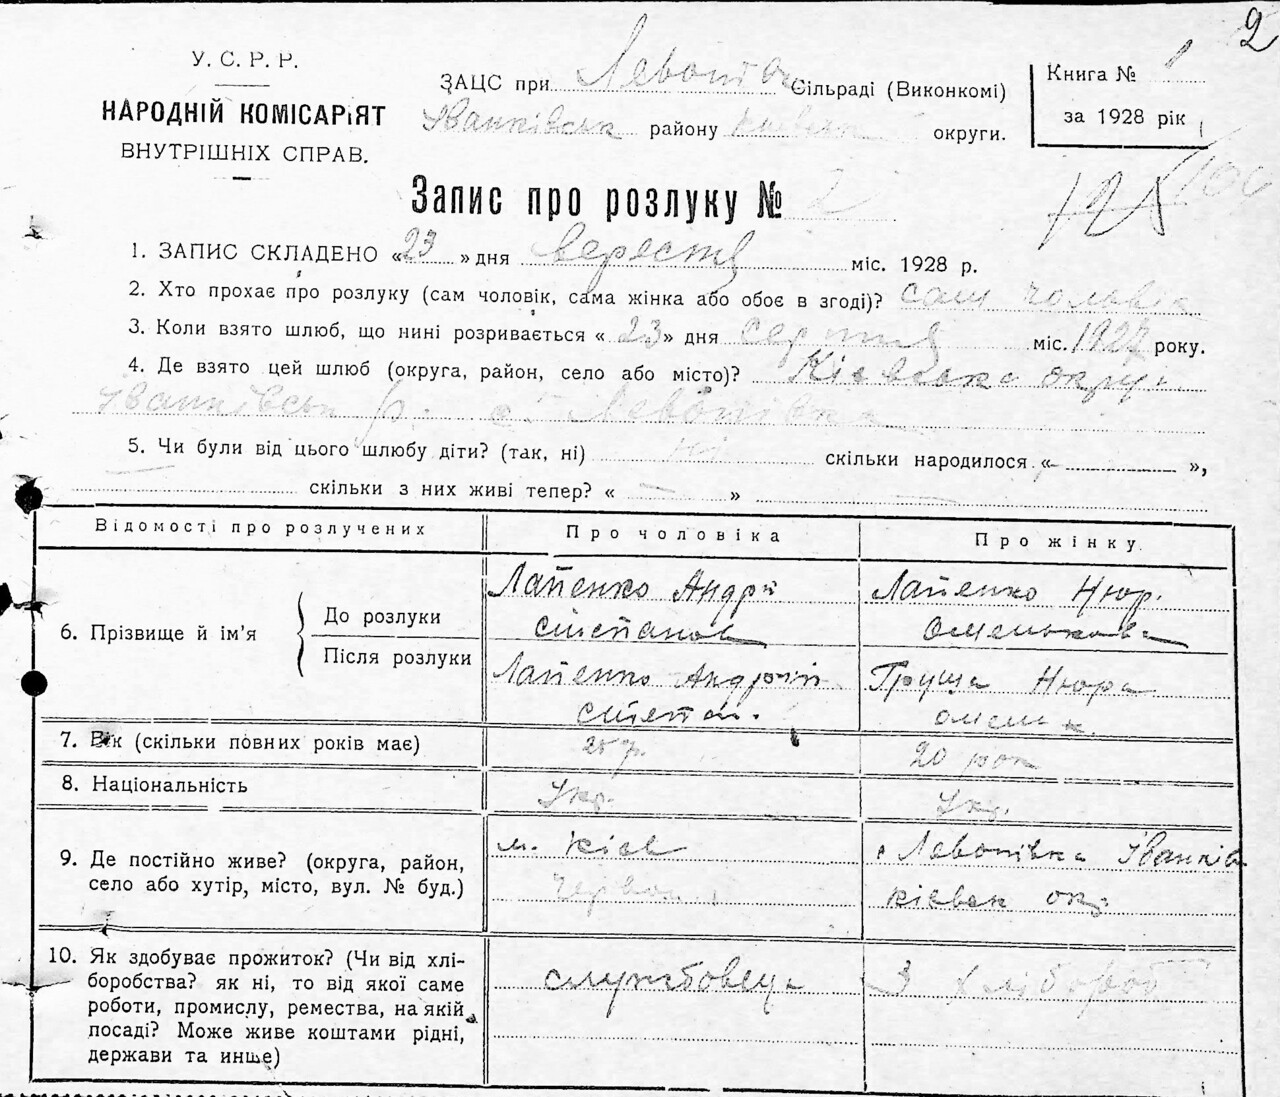 2
У. С. Р. Р.
НАРОДНІЙ КОМІСАРІЯТ
ВНУТРІШНІХ СПРАВ.
ЗАЦС при Левопів Сільраді (Виконкомі)
Іванківськ району Київськ округи.
Книга № 1
за 1928 рік
Запис про розлуку № 2
1. ЗАПИС СКЛАДЕНО «23» дня вересня міс. 1928 р.
2. Хто прохає про розлуку (сам чоловік, сама жінка або обоє в згоді)? сам чоловік
3. Коли взято шлюб, що нині розривається «23» дня серпня міс. 1927 року.
4. Де взято цей шлюб (округа, район, село або місто)? Київська округ
Іванківськ р. с. Левопівка
5. Чи були від цього шлюбу діти? (так, ні) ні скільки народилося „— »,
скільки з них живі тепер? « — »
Відомості про розлучених
Про чоловіка
Про жінку
6. Прізвище й ім'я
До розлуки
Лапенко Андрі
степанов
Лапенко Нюр.
Омелькова
Після розлуки
Лапенко Андрій
степан.
Груша Нюра
омельк
7. Вік (скільки повних років має)
25 р.
20 рок
8. Національність
Укр.
Укр.
9. Де постійно живе? (округа, район,
село або хутір, місто, вул. № буд.)
м. Кієв
Левопівка Іванків
кієвск окр
10. Як здобуває прожиток? (Чи від хлі-
боробства? як ні, то від якої саме
роботи, промислу, ремества, на якій
посаді? Може живе коштами рідні,
держави та инше)
службовець
З хлібороб